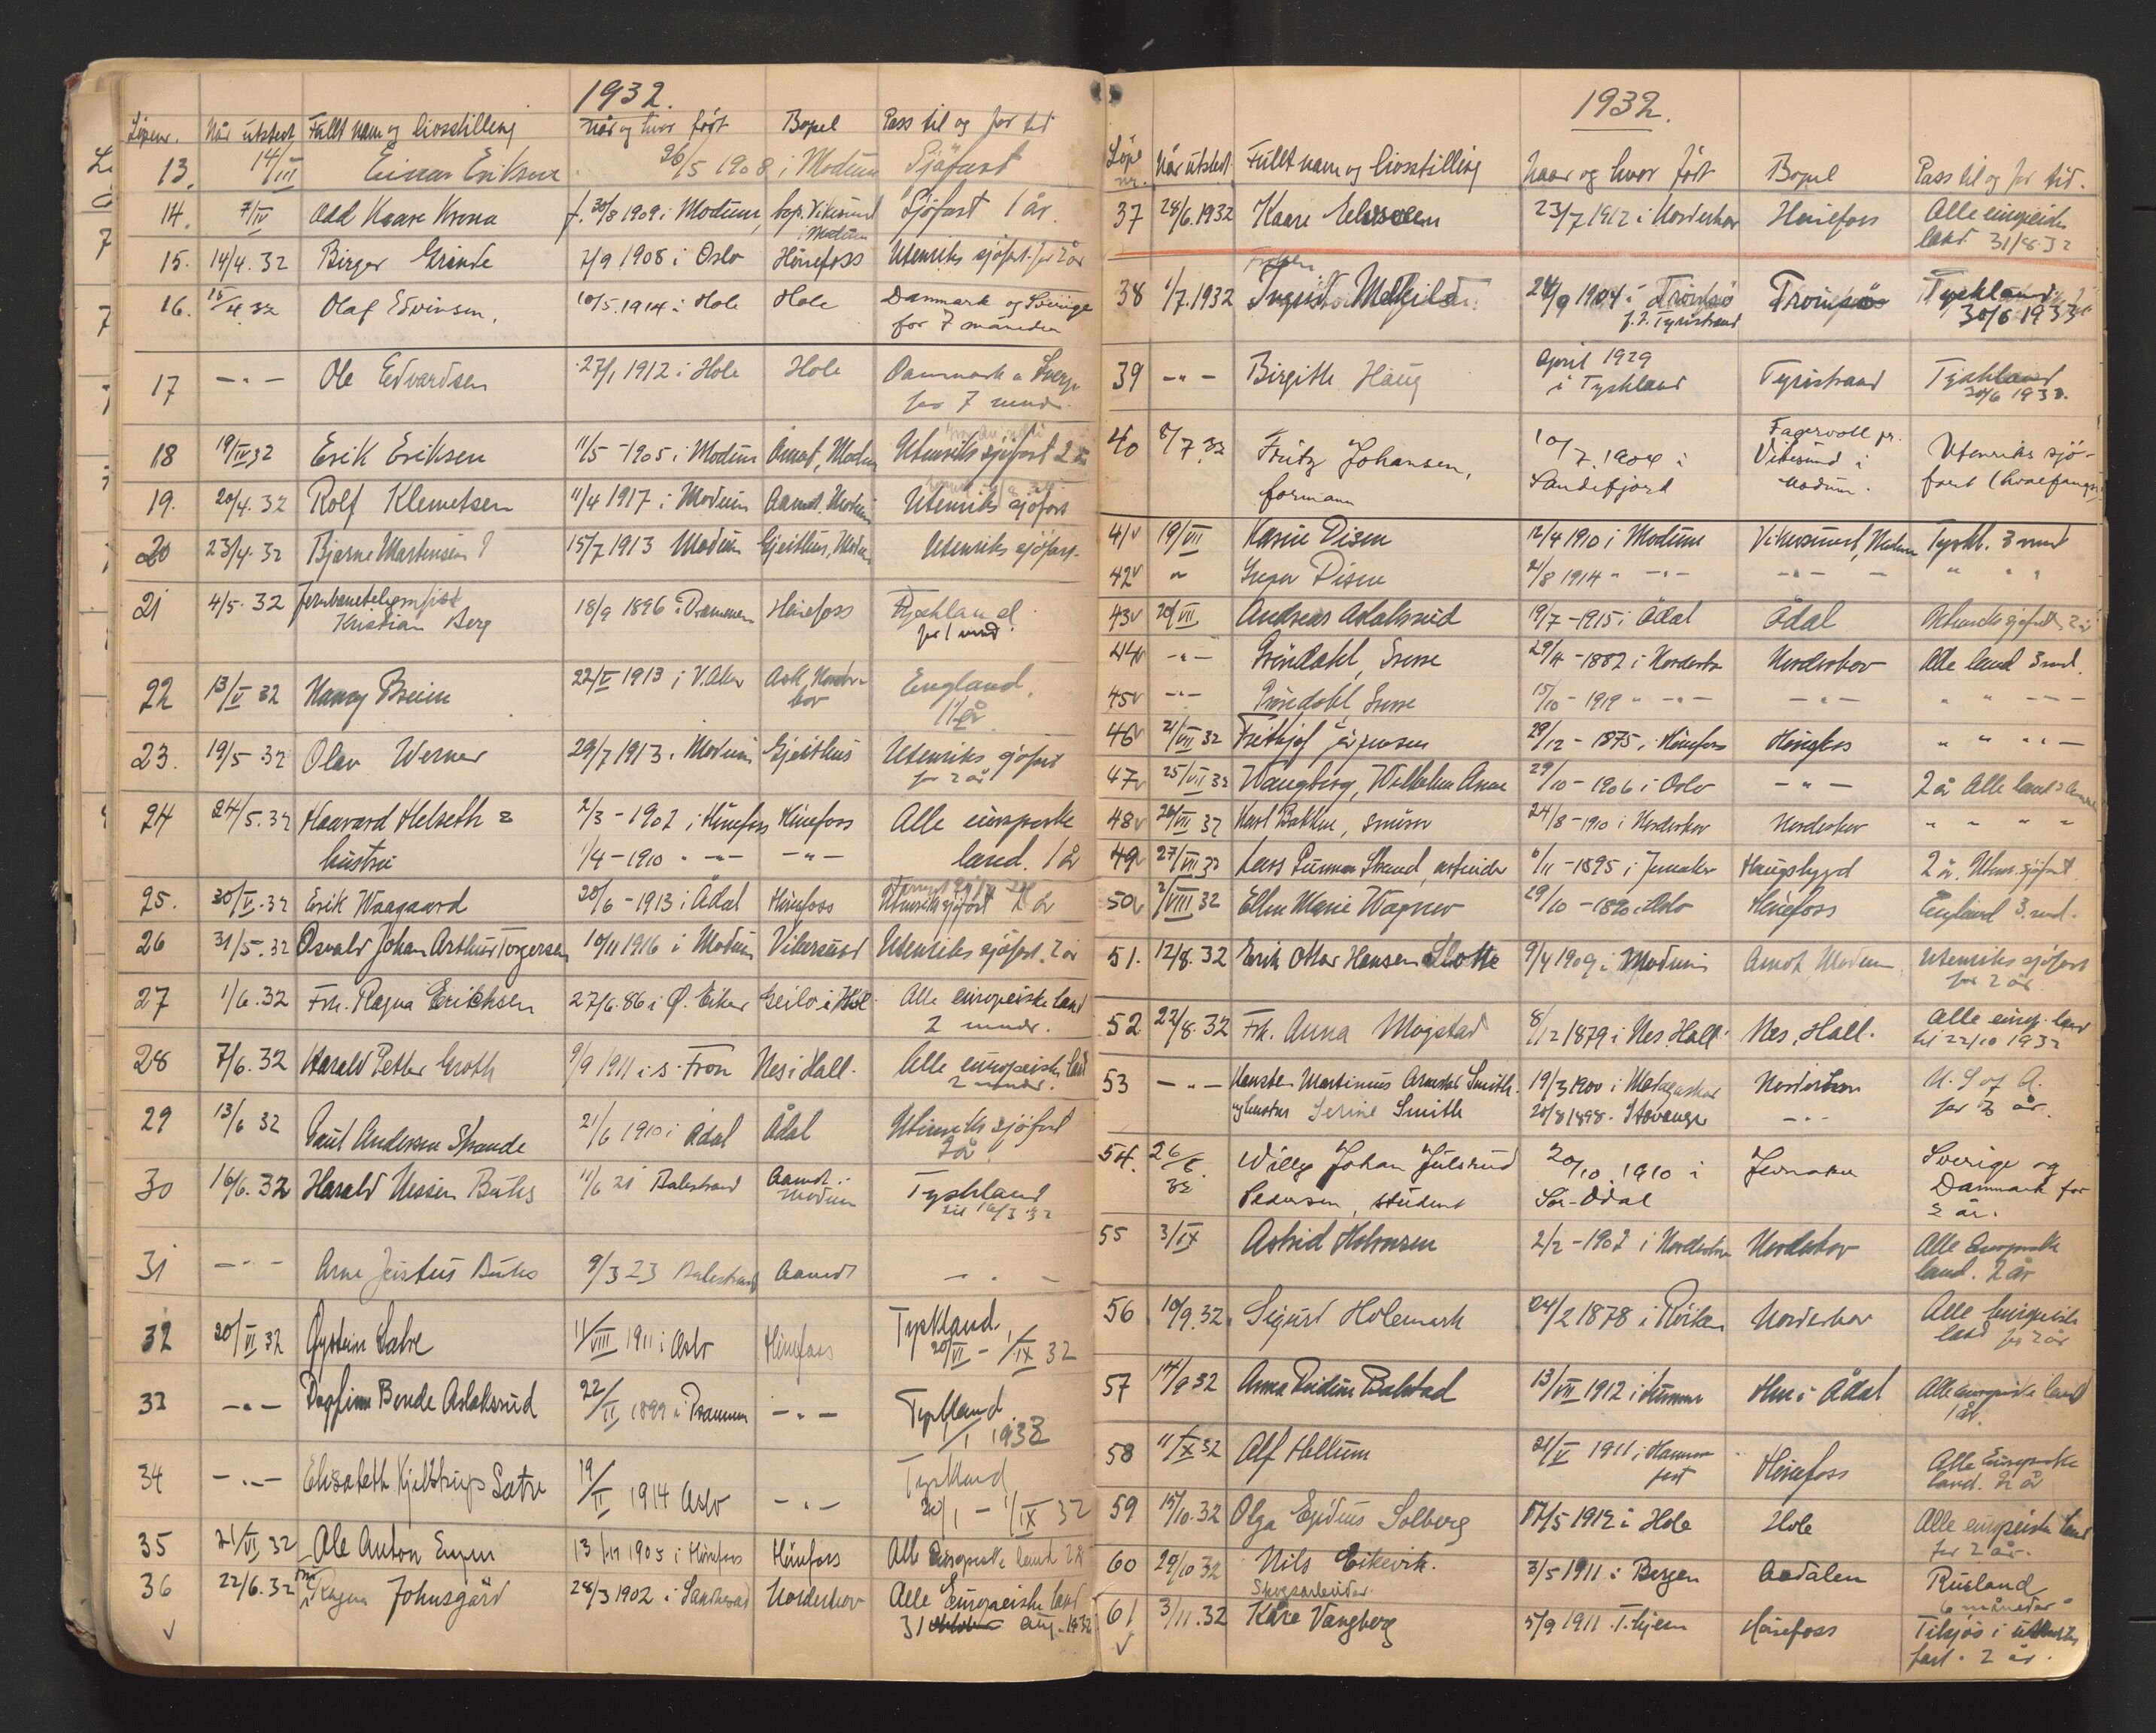 1932.
Löpenr. Når utstedt Fullt navn og livsstilling Når og hvor født Bopel Pass til og for tid
13. 14/III Einar Eriksen 26/5 1908 i Modum Sjøfart
14. 7/IV Odd Kaare Krona f. 30/8 1909 i Modum, bop. Vikesund i Modum Sjøfart 1 år.
15. 14/4.32 Birger Grinde 2/9 1908 i Oslo Hönefoss Utenriks sjøfart for 2 år
16. 15/4 32 Olaf Edvinsen, 10/5.1914 i Hole Hole Danmark og Sverige
for 7 måneder
17 -"- Ole Edvardsen 27/1 1912 i Hole Hole Danmark o Sverge
for 7 mndr.
18 19/IV 32 Erik Eriksen 11/5 -1905 i Modum Åmot, Modum Utenriks sjøfart 2 år
19. 20/4.32 Rolf Klemetsen 11/4 1917 i Modum Aamot, Modum Utenriks sjøfart
20 23/4.32 Bjarne Martensen 15/7 1913 Modum Gjeithus, Modum Utenriks sjøfart
21 4/5.32 Jernbanetelegrafist
Kristian Berg 18/9 1896 i Drammen Hönefoss Tyskland
for 1 mnd.
22 13/V 32 Nancy Breien 22/V 1913 i V. Aker Ask, Norderhov England.
1 år
23. 19/5.32 Olav Werner 29/7 1913 i Modum Gjeithus Utenriks sjøfart
for 2 år
24 24/5.32 Haavard Helseth & 2/3 -1902 i Hönefoss Hönefoss Alle europeiske
hustru 1/4 -1910 " -"- -"- land. 1 år
25. 30/V.32 Erik Waagaard 20/6 -1913 i Ådal Hönefoss Utenriks sjøfart 2 år
26 31/5.32 Osvald Johan Arthur Torgersen 10/11 1916 i Modum Vikersund Utenriks sjøfart. 2 år
27 1/6.32 Frk. Ragna Erichsen 27/6.86 i Ø. Eiker Geilo i Hol Alle europeiske land
2 mndr.
28 7/6.32 Harald Petter Groth 9/9 1911 i S. Fron Nes i Hall. Alle europeiske land
2 mndr.
29 13/6 32 Paul Andersen Strande 21/6 1910 i Ådal Ådal Utenriks sjøfart
2 år.
30 16/6.32 Harald Nissen Buhs 11/6 21 Balestrand Aamot Modum Tyskland
til 16/3 32
31 -"- Arne Justus Buhs 9/3 23 Balestrand Aamot -"-
32 20/VI 32 Øystein Sætre 11/VIII 1911 i Oslo Hönefoss Tyskland
20/VI - 1/IX 32
33 -"- Dagfinn Bende Aslaksrud 22/II 1899 i Drammen -"- Tyskland
1/1 1933
34 -"- Elisabeth Kjelstrup Sætre 19/II 1914 Oslo -"- Tyskland
20/1 - 1/IX 32
35 21/VI 32 Ole Anton Engen 13/11 1905 i Hönefoss Hönefoss Alle Europeiske land 2 år
36 22/6.32 Ragna Johnsgård 28/3 1902 i Sandnessjø Norderhov Alle Europeiske land
31 aug. 1932
1932.
Löpe nr. Når utstedt Fullt navn og livsstilling Naar og hvor født Bopel Pass til og for tid.
37 28/6.1932 Kaare 23/7 1912 i Norderhov Hönefoss Alle europeiske
land 31/8.32
38 1/7.1932 Frøken
Ingrid 24/9 1904 i Tromsø Tromsø Tyskland
f.t. Tyristrand 30/6 1933
39 -"- Birgith Haug April 1929
i Tyskland Tyristrand Tyskland
30/6 1933.
40 8/7 32 Fritz Johansen,
formann 10/7.1904 i
Sandefjord Fagervoll pr.
Vikesund i
Modum. Utenriks sjø-
fart (hvalfangst)
41 19/VII Karin Disen 12/4 1910 i Modum Vikersund, Modum Tyskl. 3 mnd
42 " Disen 2/8 1914 " -"- -"- " " "
43 20/VII Andreas Aslaksrud 19/7 -1915 i Ådal Ådal Utenriks sjøfart 2 år
44 -"- Gröndahl, Sverre 29/4 -1882 i Norderhov Norderhov Alle land 3 md.
45 -"- Gröndahl, Sverre 15/10 -1919 " -"- -"- " " -"-
46 21/VII 32 Fridtjof Jörgensen 29/12 -1875 i Hönefoss Hönefoss " " " "
47 25/VII 32 Wangberg, Wilhelm Arne 29/10 -1906 i Oslo -"- 2 år Alle land
48 26/VII 32 Karl Bakken, snömr 24/8 -1910 i Norderhov Norderhov " " " "
49 27/VII 32 Lars Gunnar Strand, arbeider 6/11 -1895 i Jevnaker Haugsbygd 2 år. Utenr. sjøfart.
50 2/VIII 32 Ellen Marie Wagner 29/10 -1890 i Oslo Hönefoss England 3. md.
51. 12/8.32 Erik Ottar Hansen Slotte 9/4 1909 i Modum Åmot Modum Utenriks sjøfart
for 2 år
52 22/8.32 Frk. Anna Mogstad 8/12 1879 i Nes Hall. Nes, Hall. Alle europ. land
til 22/10 1932
53 -"- Karsten Martinius Smith 19/3 1900 i Madagaskar Norderhov U.S of A.
og hustru Serine Smith 20/8 1898. Stavanger -"- for 2 år.
54. 26/8 32 Willy Johan Julsrud
Pedersen, student 20/10.1910 i
Sør-Odal Jevnaker Sverige og
Danmark for
2 år.
55 3/IX Astrid Halvorsen 2/2 -1902 i Norderhov Norderhov Alle Europeiske
land. 2 år
56 10/9.32 Sigurd Holemark 24/2 1878 i Röiken Norderhov Alle Europeiske
land for 2 år
57 14/9 32 Anna Balstad 13/VII 1912 i Hen i Ådal Alle europeiske land
1 år.
58 11/X 32 Alf Hellum 21/V 1911 i Hammerfest Hönefoss Alle Europeiske
land. 2 år
59 15/10.32 Olga Egidius Solberg 17/5 1912 i Hole Hole Alle europeiske land
for 2 år.
60 29/10 32 Nils Eikevik.
Skogsarbeider. 3/5 1911 i Bergen Aadalen Rusland
6 måneder
61 3/11.32 Kåre Vangberg 5/9 1911 T.hjem Hönefoss Tilsjøs i utenriks
fart. 2 år.